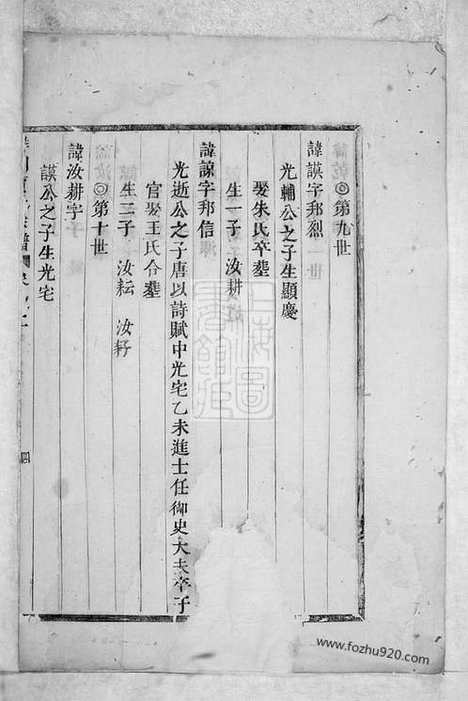 ◎第九世
諱謨字邦烈
光輔公之子生顯慶
娶朱氏卒塟
生一子 汝耕
諱諒字邦信
光逊公之子唐以詩賦中光宅乙未進士任御史大夫卒于
官娶王氏合塟
生二子 汝耘 汝耔
◎第十世
諱汝耕字
謨公之子生光宅
上海圖書館藏
www.fozhu920.com